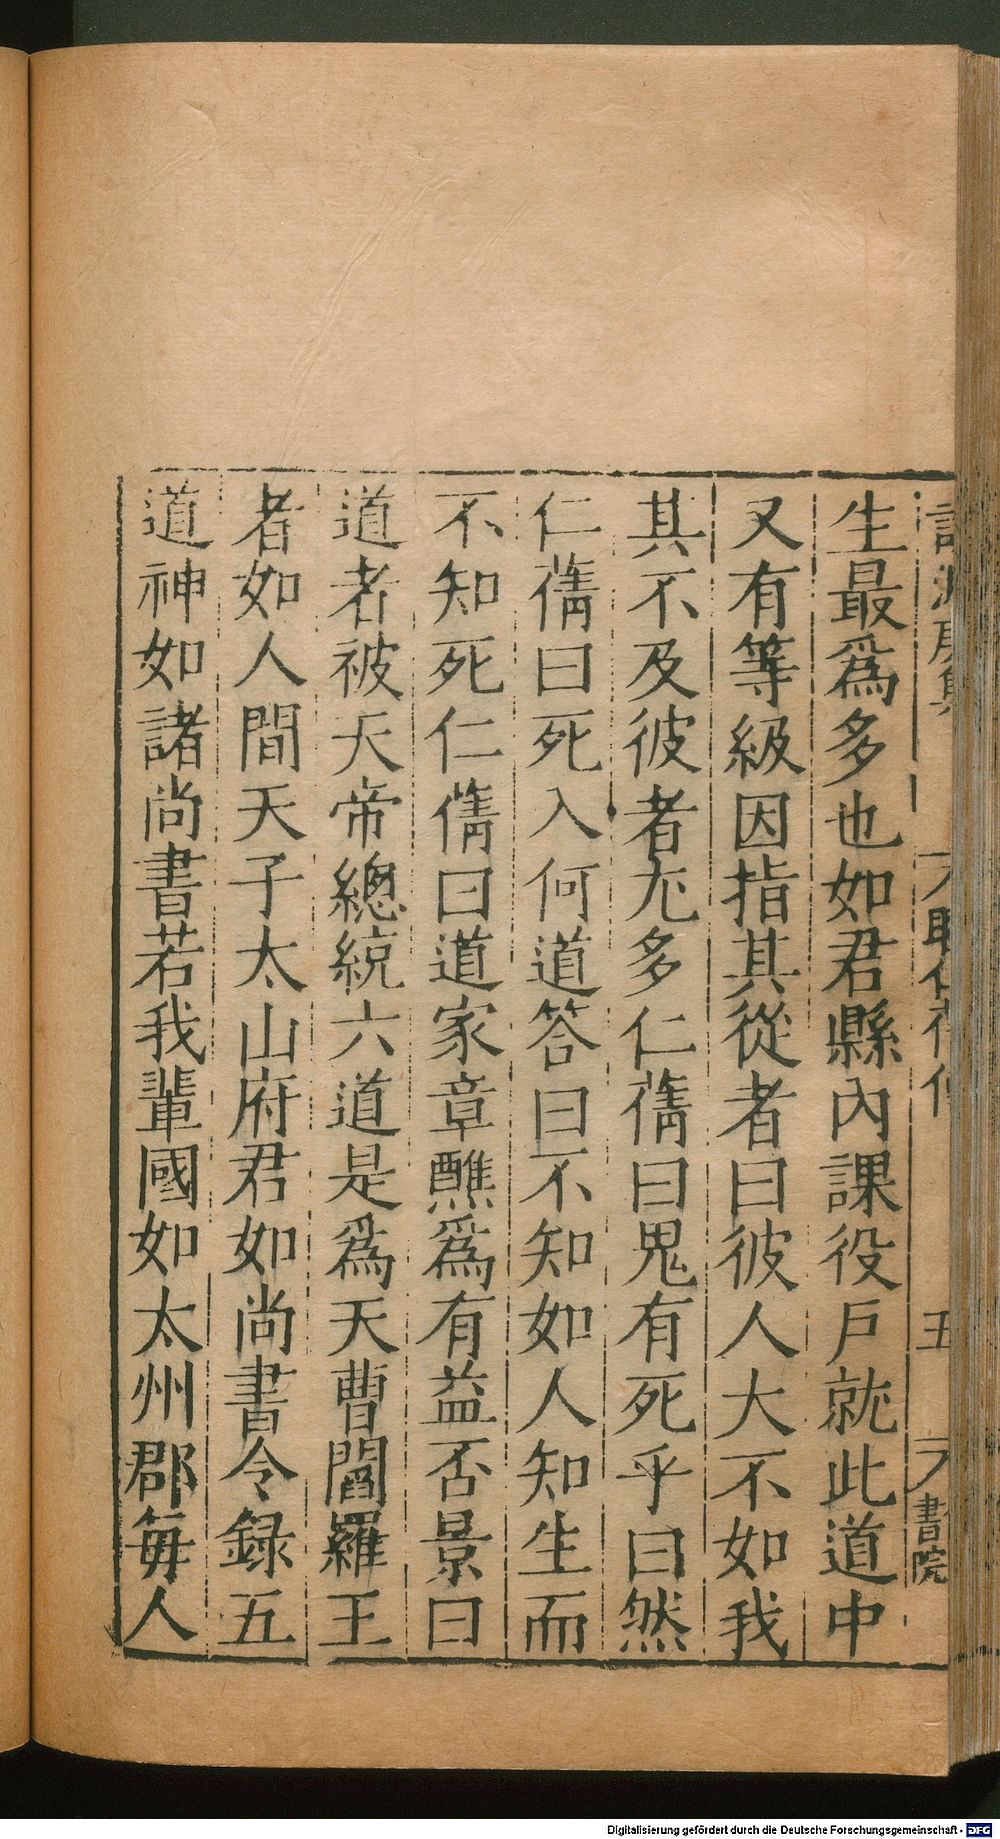 生最爲多也如君縣內課役戶就此道中
又有等級因指其從者曰彼人大不如我
其不及彼者尢多仁蒨曰鬼有死乎曰然
仁蒨曰死入何道答曰不知如人知生而
不知死仁蒨曰道家章醮爲有益否景曰
道者被天帝總統六道是爲天曹閻羅王
者如人間天子太山府君如尚書令録五
道神如諸尚書若我輩國如太州郡每人
五
書院
Digitalisierung gefördert durch die Deutsche Forschungsgemeinschaft - DFG